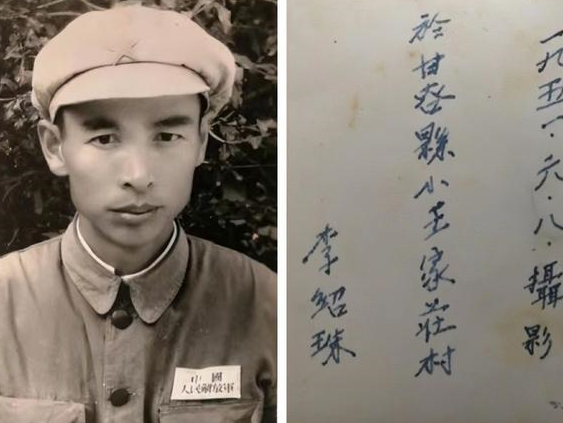 中國
人民解放軍
一九五一·六·八·攝影
於甘谷縣小王家莊村
李紹珠